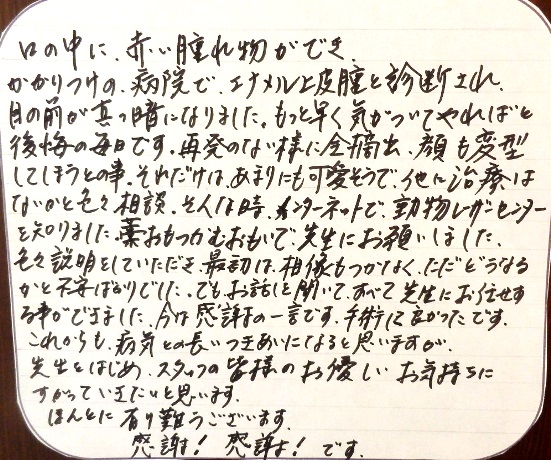 口の中に、赤い腫れ物ができ
かかりつけの、病院で、エナメル上皮腫と診断され、
目の前が真っ暗になりました。もっと早く気がついてやればと
後悔の毎日です。再発のない様に全摘出、顔も変型
してしまうとの事、それだけは、あまりにも可愛そうで、他に治療は
ないかと色々相談、そんな時、インターネットで、動物レーザーセンター
を知りました、藁おもつかむおもいで、先生にお願いしました、
色々説明をしていただき、最初は、相像もつかなく、ただどうなる
かと不安ばかりでした、でもお話しを聞いて、すべて先生にお任せす
る事ができました、今は感謝の一言です、手術して良かったです。
これからも、病気との長いつきあいになると思いますが、
先生をはじめ、スタッフの皆様のお優しいお気持ちに
すがっていきたいと思います。
ほんとに有り難うございます、
感謝！感謝！です。